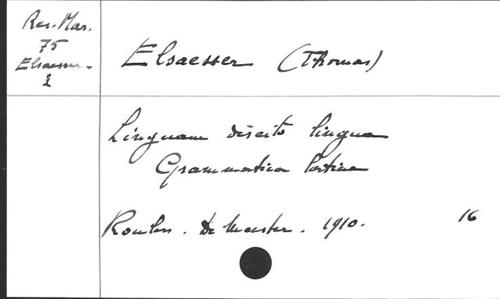 Res. Mar.
75
Elsaesser.
2
Elsaesser (Thomas)
Linguam discito lingua
Grammatica latina
Roulers. De Meester. 1910.
16